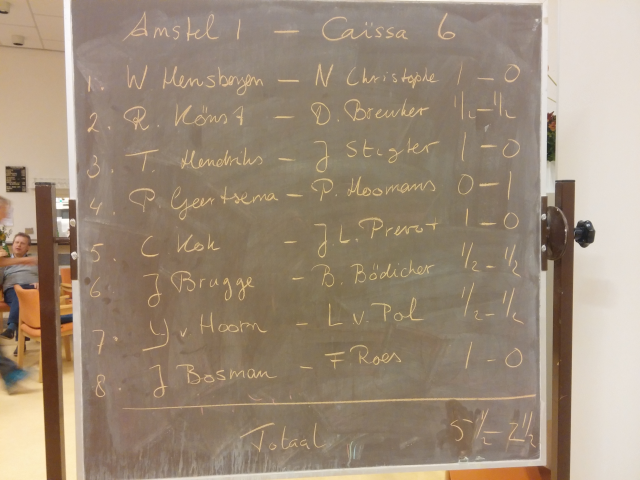 Amstel 1 — Caïssa 6
1. W Hensbergen — N Christophe 1 — 0
2. R. Könst — D. Breuker 1/2 — 1/2
3. T. Hendriks — J Stigter 1 — 0
4. P Geertsema — P. Moomans 0 — 1
5. C Kok — J.L. Prevot 1 — 0
6. J Brugge — B. Bödicher 1/2 — 1/2
7. Y v Hoorn — L v. Pol 1/2 — 1/2
8. J Bosman — F Roes 1 — 0
Totaal 5 1/2 — 2 1/2